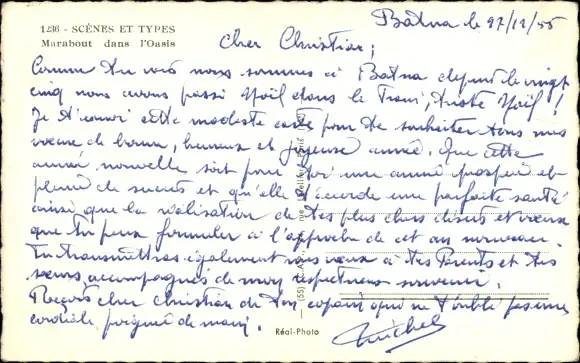 1236 - SCÈNES ET TYPES
Marabout dans l'Oasis
Batna le 27/12/55
Cher Christian ;
Comme tu vois nous sommes à Batna depuis le vingt
cinq nous avons passé Noël dans le Train, triste Noël !
Je t'envoi cette modeste carte pour te souhaiter tous mes
vœux de bonne, heureuse et joyeuse année. Que cette
année nouvelle soit pour toi une année prospère et
pleine de succès et qu'elle t'accorde une parfaite santé
ainsi que la réalisation de tes plus chers désirs et vœux
que tu peux formuler à l'approche de cet an nouveau.
Tu transmettras également mes vœux à tes Parents et tes
sœurs, accompagnés de mon respectueux souvenir.
Reçois cher Christian de ton copain qui ne t'oublie pas une
cordiale poignée de main.
Michel
Réal-Photo